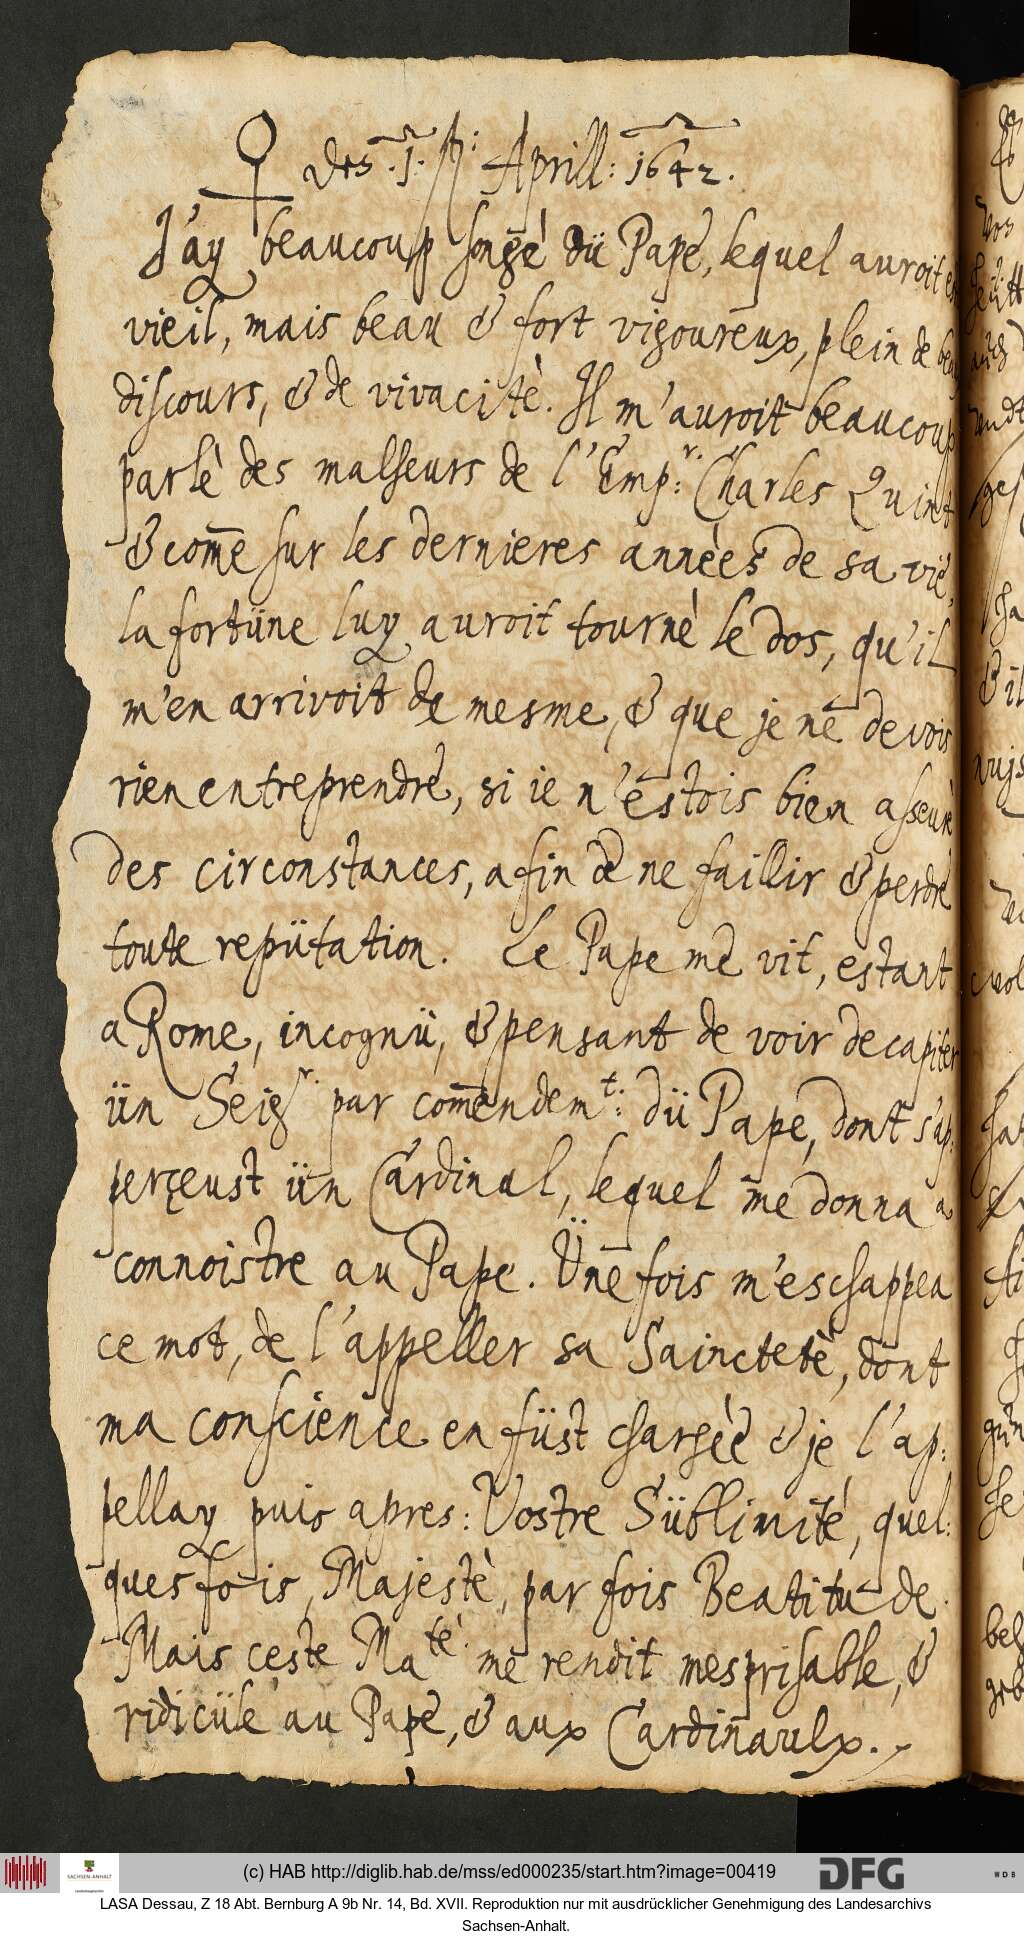 ♀ des .1. Aprill: 1642.
J'ay beaucoup songè dü Pape, lequel auroit
vieil, mais beau & fort vigoureux, plein de beau
discours, & de vivacitè. Il m'auroit beaucoup
parlè des malheurs de l'Emp:r. Charles Quint
& com̄e sur les dernieres annèes de sa vie,
la fortüne luy auroit tournè le dos, qu'il
m'en arrivoit de mesme, & que je ne devois
rien entreprendre, si ie n'estois bien asseurè
des circonstances, afin de ne faillir & perdre
toute repütation. Le Pape me vit, estant
a Rome, incognü, & pensant de voir decapiter
ün Seigr. par com̄endemt: dü Pape, dont s'ap:
perçeust ün Cardinal, lequel me donna a
connoistre au Pape. Üne fois m'eschappea
ce mot, de l'appeller sa Sainctetè, dont
ma conscience en füst chargèe & je l'ap:
pellay puis apres: Vostre Süblimité, quel:
ques fois, Majestè, par fois Beatitude.
Mais ceste Ma.té me rendit mesprisable, &
ridicüle au Pape, & aux Cardinaulx.
(c) HAB http://diglib.hab.de/mss/ed000235/start.htm?image=00419
SACHSEN-ANHALT
DFG
WDB
LASA Dessau, Z 18 Abt. Bernburg A 9b Nr. 14, Bd. XVII. Reproduktion nur mit ausdrücklicher Genehmigung des Landesarchivs
Sachsen-Anhalt.